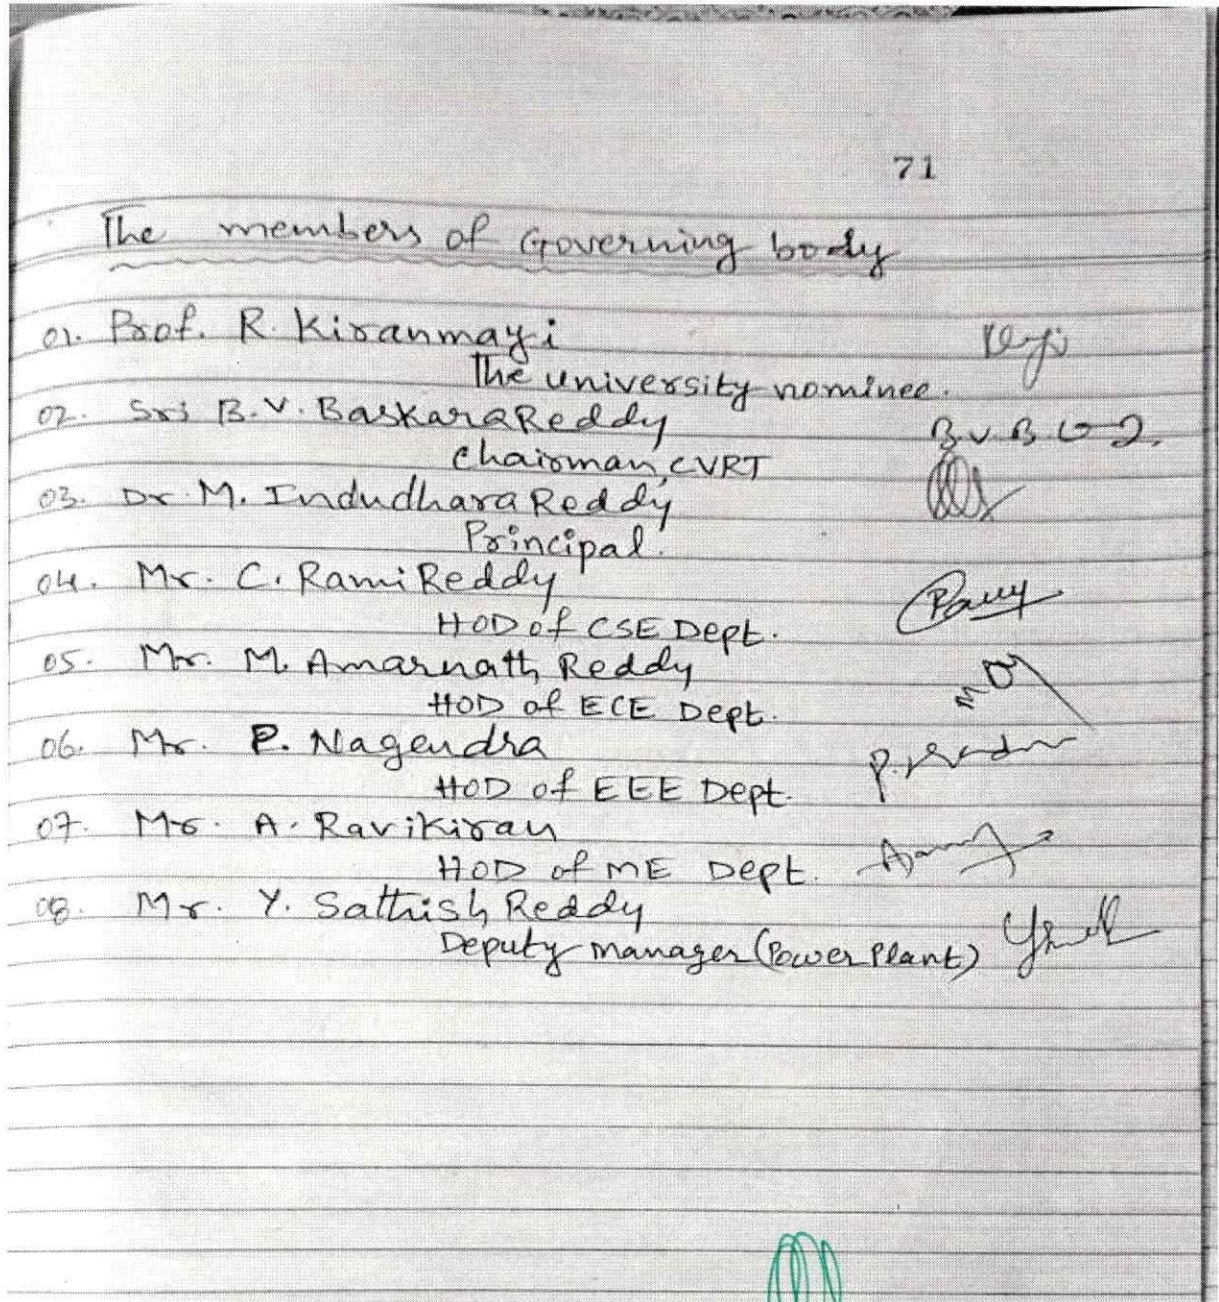 71
The members of Governing body
01. Prof. R. Kiranmayi
The university nominee.
02. Sri B.V. Baskara Reddy
B.V.B.
Chairman, CVRT
03. Dr. M. Indudhara Reddy
Principal.
04. Mr. C. Rami Reddy
HOD of CSE Dept.
05. Mr. M. Amarnath Reddy
HOD of ECE Dept.
06. Mr. P. Nagendra
HOD of EEE Dept.
07. Mr. A. Ravikiran
HOD of ME Dept.
08. Mr. Y. Sathish Reddy
Deputy Manager (Power Plant)